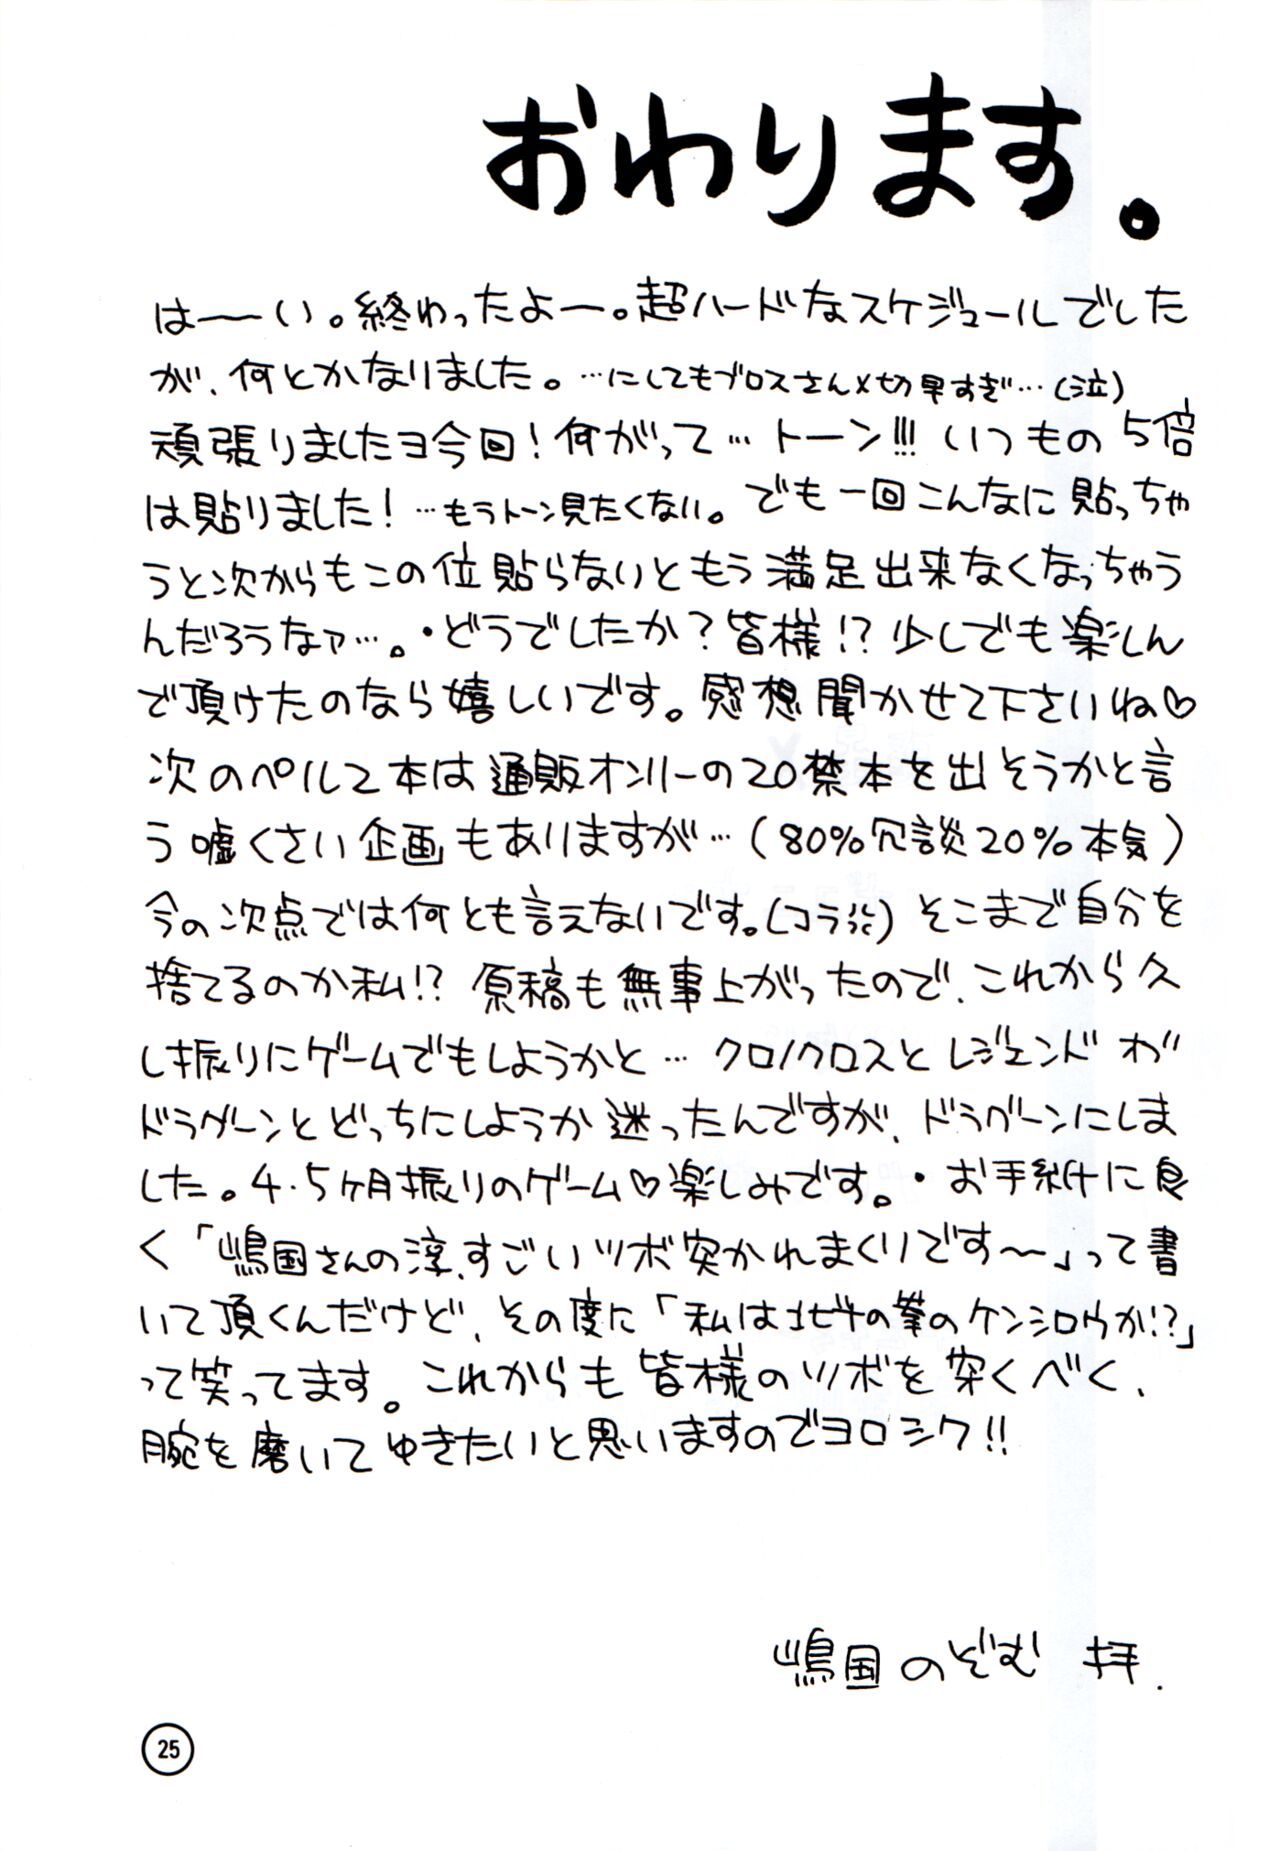 おわります。
は──い。終わったよー。超ハードなスケジュールでした
が、何とかなりました。…にしてもブロスさん〆切早すぎ…(泣)
頑張りましたヨ今回！何がって…トーン!!!いつもの5倍
は貼りました！…もうトーン見たくない。でも一回こんなに貼っちゃ
うと次からもこの位貼らないともう満足出来なくなっちゃう
んだろうなァ…。・どうでしたか？皆様!?少しでも楽しん
で頂けたのなら嬉しいです。感想聞かせて下さいね♡
次のペルソ本は通販オンリーの20禁本を出そうかと言
う嘘くさい企画もありますが…(80%冗談20%本気)
今の次点では何とも言えないです。(コラ)そこまで自分を
捨てるのか私!?原稿も無事上がったので、これから久
し振りにゲームでもしようかと…クロノクロスとレジェンドオブ
ドラグーンとどっちにしようか迷ったんですが、ドラグーンにしま
した。4・5ヶ月振りのゲーム♡楽しみです。・お手紙に良
く「嶋国さんの淳、すごいツボ突かれまくりです〜」って書
いて頂くんだけど、その度に「私は北斗の拳のケンシロウか!?」
って笑ってます。これからも皆様のツボを突くべく、
腕を磨いてゆきたいと思いますのでヨロシク!!
嶋国のぞむ 拝.
25